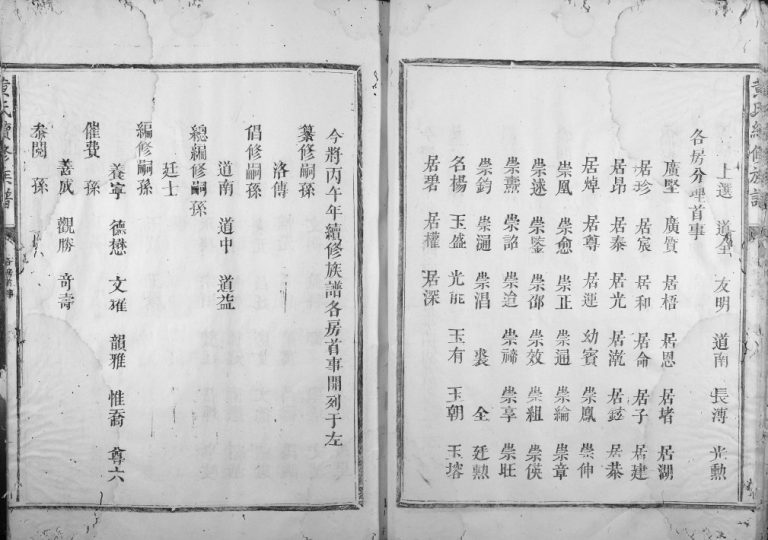 黃氏續修族譜
上選 道全 友明 道南 長溥 光勲
各房分理首事
廣堅 廣質 居梧 居恩 居堵 居湖
居珍 居宸 居和 居命 居子 居建
居昂 居泰 居光 居乾 居鉉 居恭
居焯 居尊 居運 幼賓 崇鳳 崇伸
崇凰 崇愈 崇正 崇通 崇綸 崇章
崇述 崇鑒 崇邵 崇效 崇組 崇
崇燾 崇詔 崇迨 崇禘 崇享 崇旺
崇鈞 崇 崇昌 裘 全 廷勲
名楊 玉盛 光能 玉有 玉朝 玉塎
居碧 居權 居深
今將丙午年續修族譜各房首事開列于左
纂修嗣孫
洛傳
倡修嗣孫
道南 道中 道益
總編修嗣孫
廷士
編修嗣孫
養宇 德懋 文璀 韻雅 惟喬 會六
催費 孫
善成 觀勝 奇壽
參閱 孫
黃氏續修族譜